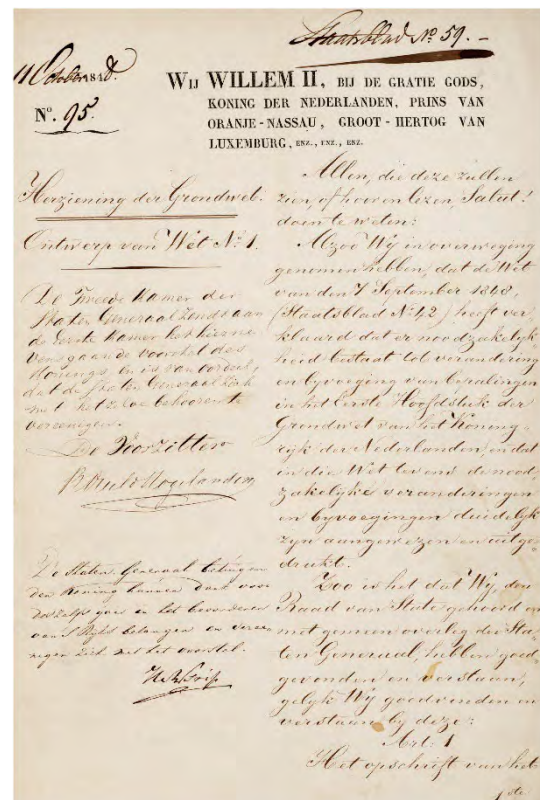 Staatsblad Nº 59. -
11 October 1848.
Nº. 95.
WIJ WILLEM II, BIJ DE GRATIE GODS,
KONING DER NEDERLANDEN, PRINS VAN
ORANJE-NASSAU, GROOT-HERTOG VAN
LUXEMBURG, ENZ., ENZ., ENZ.
Herziening der Grondwet.
Ontwerp van Wet Nº 1.
De Tweede Kamer der
Staten Generaal zendt aan
de eerste Kamer het hierne
vens gaande voorstel des
Konings en is van oordeel,
dat de Staten Generaal zich
met hetzelve behooren te
vereenigen.
De Voorzitter
De Staten Generaal betuigen
den Koning hunnen dank voor
deszelfs in het bevorderen
van 's Rijks belangen en veree
nigen zich met het voorstel.
Allen, die deze zullen
zien, of hooren lezen, Salut!
doen te weten:
Alzoo Wij in overweging
genomen hebben, dat de Wet
van den 7 September 1848,
(Staatsblad Nº 42) heeft ver
klaard dat er noodzakelijk
heid bestaat tot verandering
en byvoeging van bepalingen
in het Eerste Hoofdstuk der
Grondwet van het Koning
rijk der Nederlanden, en dat
in die Wet tevens de nood
zakelyke veranderingen
en byvoegingen duidelyk
zyn aangewezen en uitge
drukt.
Zoo is het dat Wij, den
Raad van State gehoord en
met gemeen overleg der Sta
ten Generaal, hebben goed
gevonden en verstaan,
gelyk Wij goedvinden en
verstaan by deze:
Art: 1
Het opschrift van het
1ste